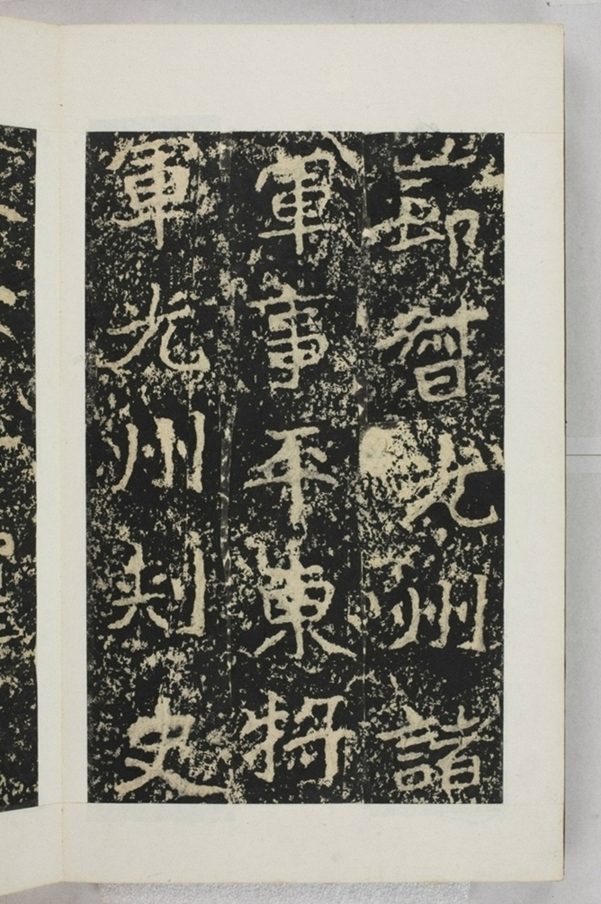 節督光州諸
軍事平東將
軍光州刺史